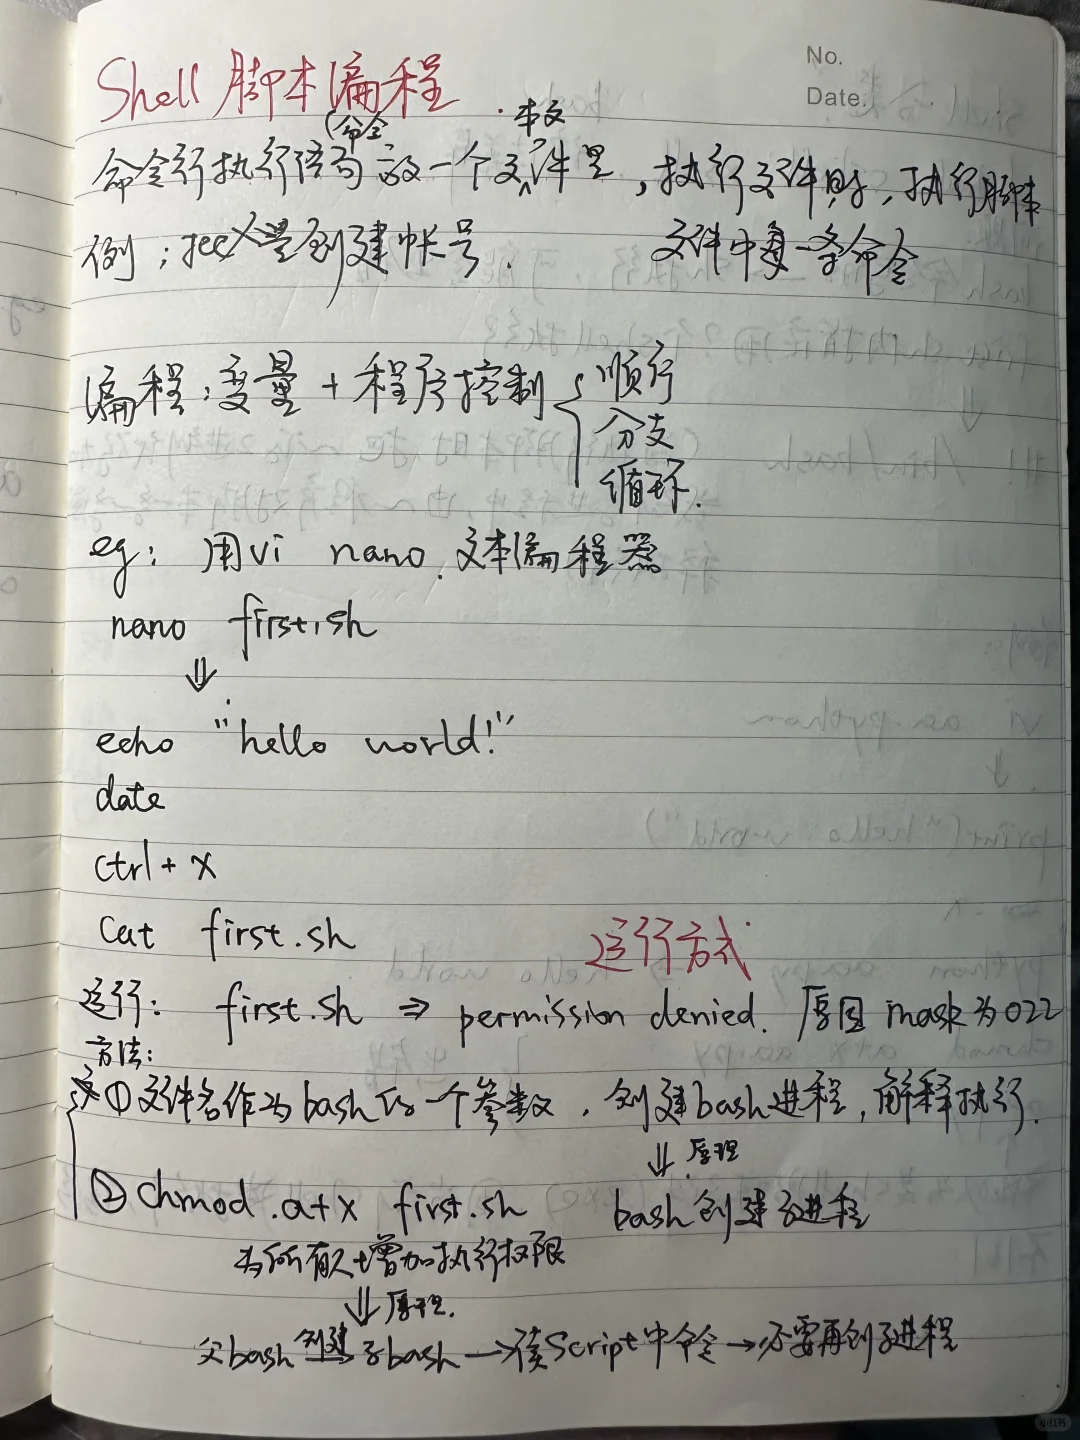 No.
Date.
Shell 脚本编程
(命令 本文
命令行执行语句放一个文件里,执行文件时,执行脚本
例:批量创建帐号. 文件中每一条命令
编程:变量 + 程序控制 顺行
分支
循环.
eg: 用vi nano. 文本编程器
nano first.sh
⇓
echo "hello world!"
date
ctrl + x
Cat first.sh
运行方式
运行: first.sh ⇒ permission denied. 原因 mask为022
方法:
① 文件名作为bash的一个参数,创建bash进程,解释执行.
⇓ 原理
② chmod.a+x first.sh bash创建子进程
为所有人增加执行权限
⇓ 原理.
父bash 创建 子bash → 读Script中命令 → 必要再创子进程
小红书